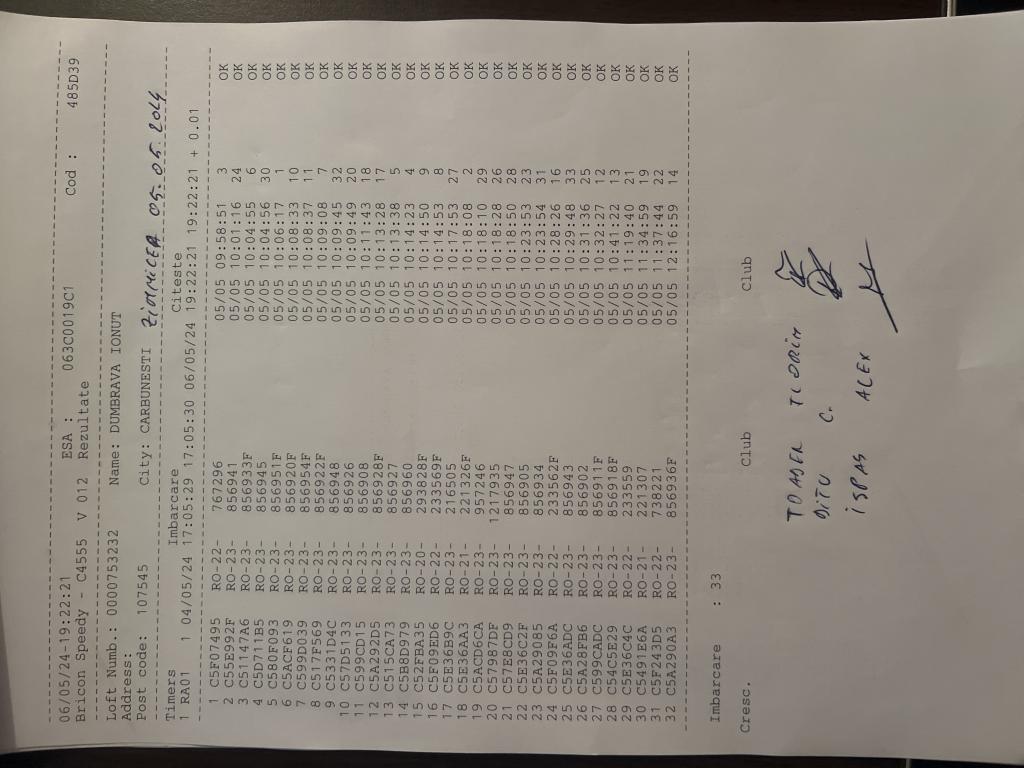 06/05/24-19:22:21
Bricon Speedy - C4555 V 012 ESA : 063C0019C1 Cod : 485D39
Rezultate
Loft Numb.: 0000753232 Name: DUMBRAVA IONUT
Address:
Post code: 107545 City: CARBUNESTI ZIMNICEA 05.05.2024
Timers Imbarcare Citeste
1 RA01 1 04/05/24 17:05:29 17:05:30 06/05/24 19:22:21 19:22:21 + 0.01
1 C5F07495 RO-22- 767296 05/05 09:58:51 3 OK
2 C55E992F RO-23- 856941 05/05 10:01:16 24 OK
3 C51147A6 RO-23- 856933F 05/05 10:04:55 6 OK
4 C5D711B5 RO-23- 856945 05/05 10:04:56 30 OK
5 C5B0F093 RO-23- 856951F 05/05 10:06:17 1 OK
6 C5ACF619 RO-23- 856920F 05/05 10:08:33 10 OK
7 C599D039 RO-23- 856954F 05/05 10:08:37 11 OK
8 C517F569 RO-23- 856922F 05/05 10:09:08 7 OK
9 C5331D4C RO-23- 856948 05/05 10:09:45 32 OK
10 C57D5133 RO-23- 856926 05/05 10:09:49 20 OK
11 C599CD15 RO-23- 856908 05/05 10:11:43 18 OK
12 C5A292D5 RO-23- 856928F 05/05 10:13:28 17 OK
13 C515CA73 RO-23- 856927 05/05 10:13:38 5 OK
14 C5B8D979 RO-23- 856960 05/05 10:14:23 4 OK
15 C52FBA35 RO-20- 293828F 05/05 10:14:50 9 OK
16 C5F09ED6 RO-22- 233569F 05/05 10:14:53 8 OK
17 C5E36B9C RO-23- 216505 05/05 10:17:53 27 OK
18 C5E36AA3 RO-21- 221326F 05/05 10:18:08 2 OK
19 C5ACD6CA RO-23- 957246 05/05 10:18:10 29 OK
20 C57987DF RO-23- 1217935 05/05 10:18:28 26 OK
21 C57E8CD9 RO-23- 856947 05/05 10:18:50 28 OK
22 C5E36C2F RO-23- 856905 05/05 10:23:53 23 OK
23 C5A29085 RO-23- 856934 05/05 10:23:54 31 OK
24 C5F09F6A RO-22- 233562F 05/05 10:28:26 16 OK
25 C5E36ADC RO-23- 856943 05/05 10:29:48 33 OK
26 C5A28FB6 RO-23- 856902 05/05 10:31:36 25 OK
27 C599CADC RO-23- 856911F 05/05 10:32:27 12 OK
28 C54C5E29 RO-23- 856918F 05/05 10:41:22 13 OK
29 C5E36C4C RO-22- 233559 05/05 11:19:40 21 OK
30 C5491E6A RO-21- 221307 05/05 11:34:59 19 OK
31 C5F24BD5 RO-22- 738221 05/05 11:37:44 22 OK
32 C5A290A3 RO-23- 856936F 05/05 12:16:59 14 OK
Imbarcare : 33
Cresc. Club Club
TOADER FLORIN
DITU C.
ISPAS ALEX